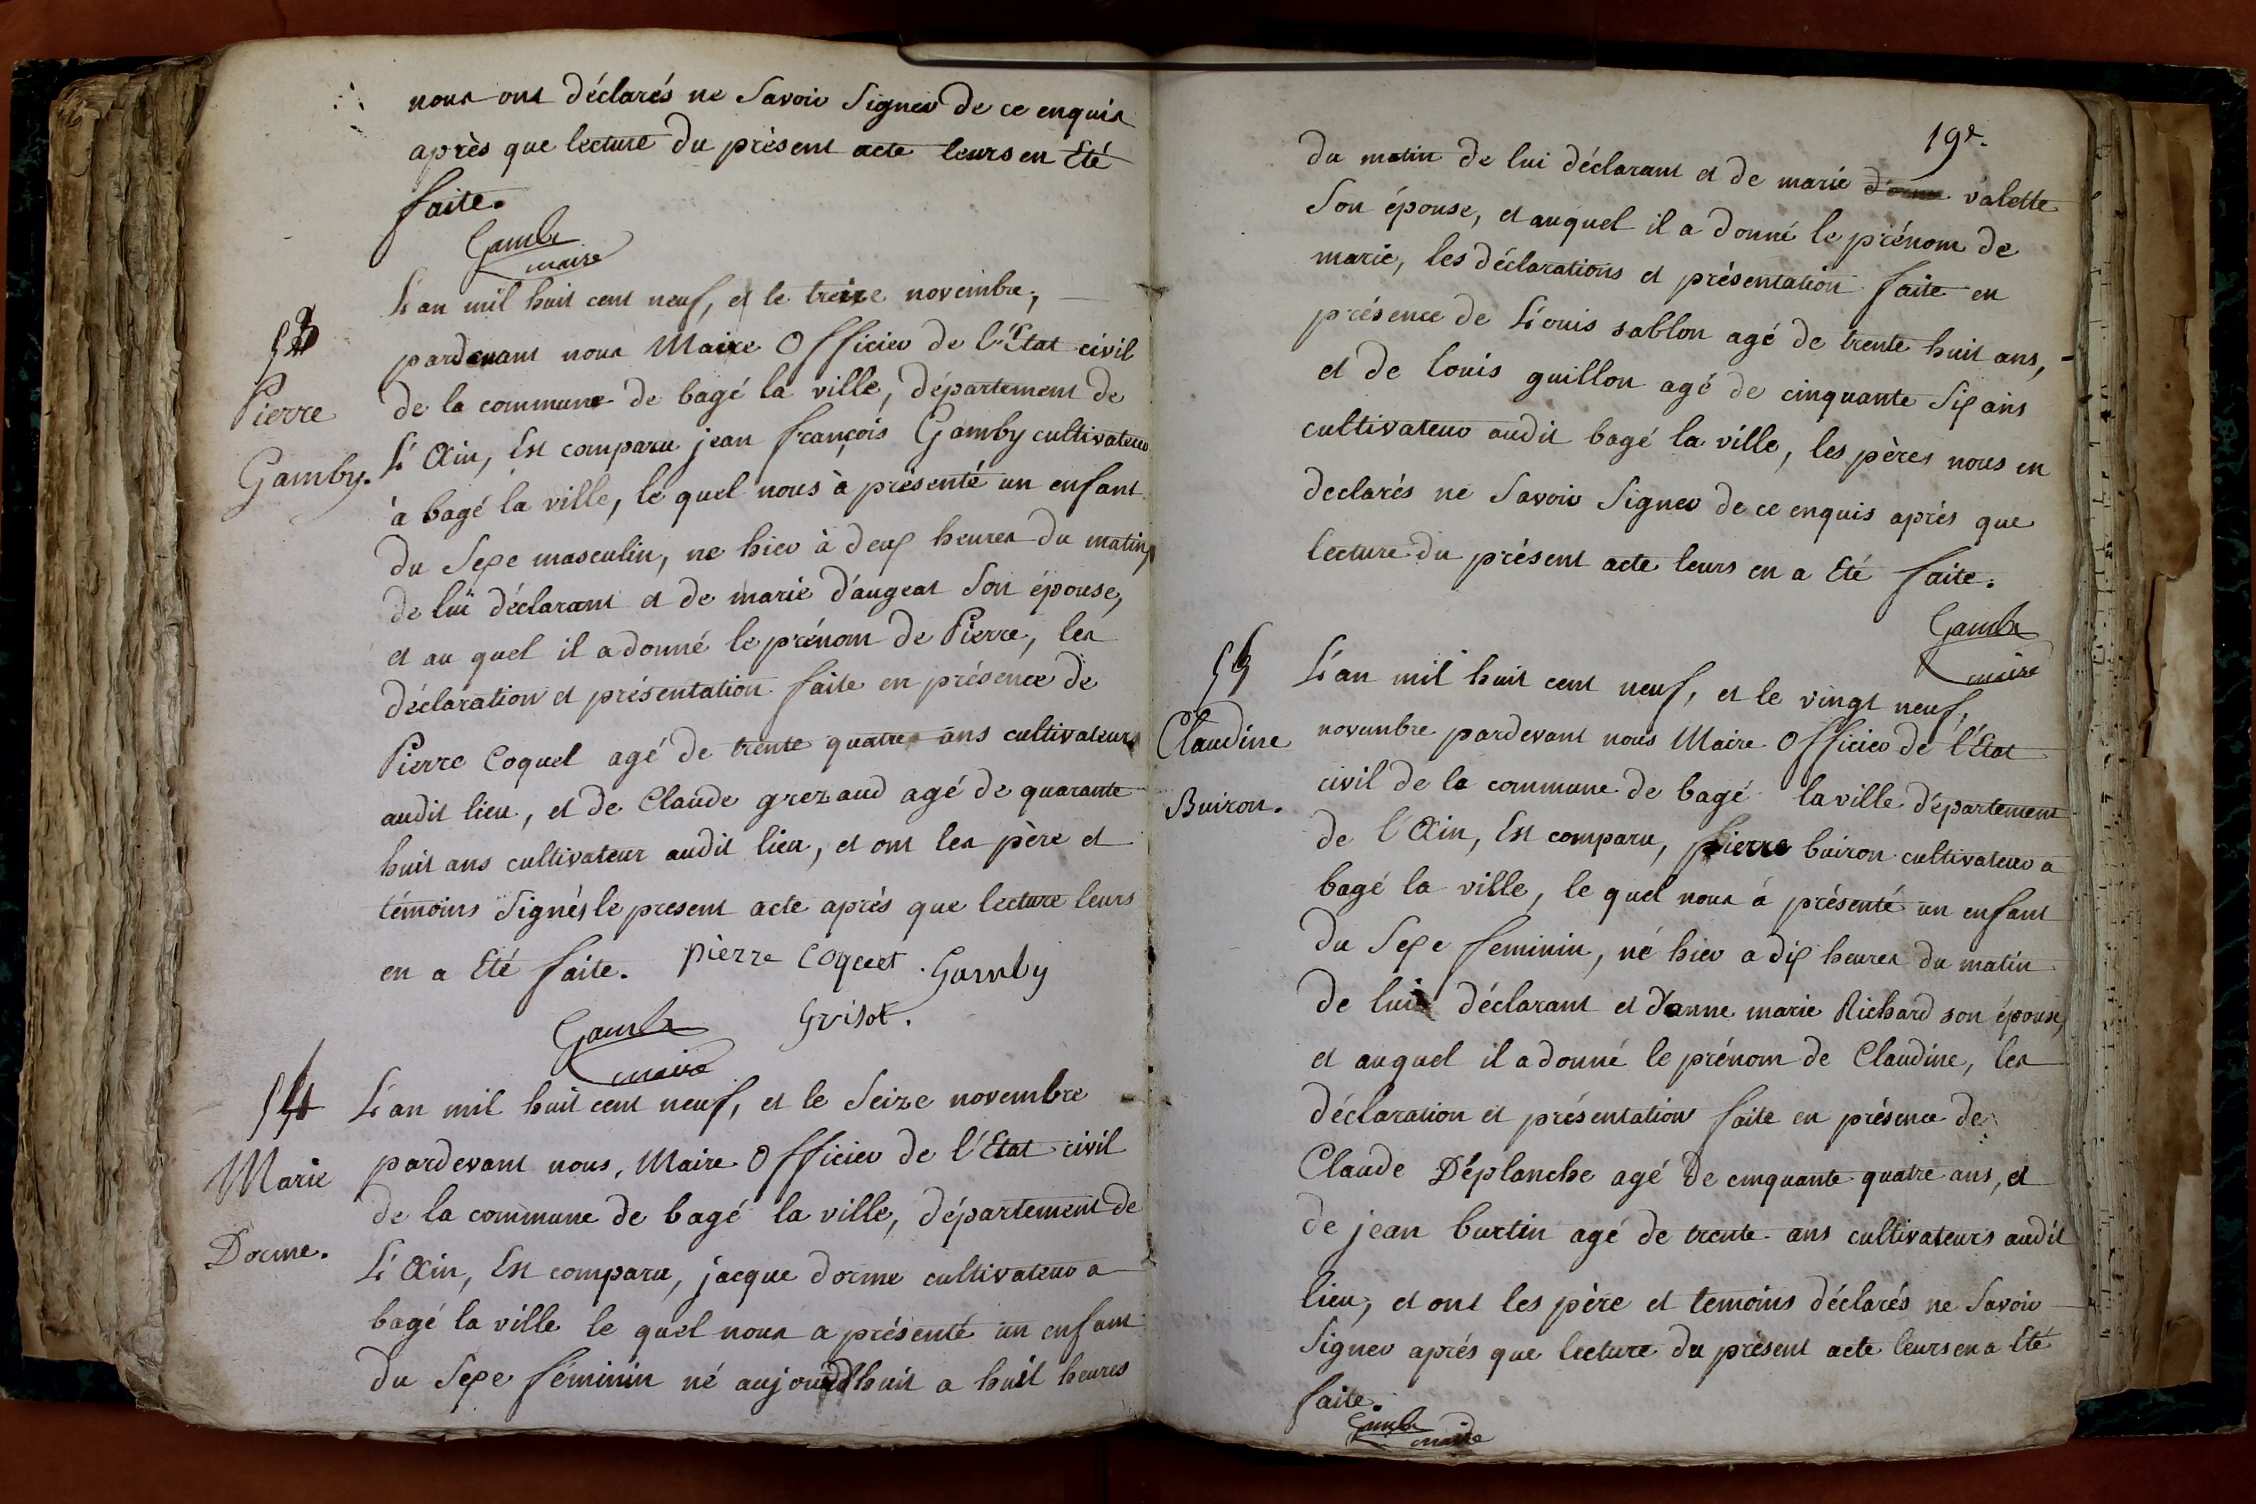 nous ont déclarés ne Savoir Signer de ce enquis
après que lecture du présent acte leurs en Eté
faite.
Gamb
maire
53
Pierre
Gamby.
L'an mil huit cent neuf, et le treize novembre,
pardevant nous Maire Officier de l'Etat civil
de la commune de bagé la ville, département de
L'Ain, Est comparu jean françois Gamby cultivateur
à bagé la ville, le quel nous à présenté un enfant
du Sexe masculin, ne hier à deux heures du matin,
de lui déclarant et de marie d'augeat Son épouse,
et au quel il a donné le prénom de Pierre, les
déclaration et présentation faite en présence de
Pierre Coquel agé de trente quatre ans cultivateurs
audit lieu, et de Claude grezaud agé de quarante
huit ans cultivateur audit lieu, et ont les père et
témoins Signés le present acte aprés que lecture leurs
en a Eté faite. pierre coquet Gamby
Gamb
maire
grisot.
54
Marie
Dorme.
L'an mil huit cent neuf, et le Seize novembre
pardevant nous, Maire Officier de l'Etat civil
de la commune de bagé la ville, département de
L'Ain, Est comparu, jacque dorme cultivateur a
bagé la ville le quel nous a présenté un enfant
du Sexe féminin né aujourdhuit a huit heures
19e.
du matin de lui déclarant et de marie valette
Son épouse, et auquel il a donné le prénom de
marie, les déclarations et présentation faite en
présence de Louis sablon agé de trente huit ans,
et de louis guillon agé de cinquante Six ans
cultivateur audit bagé la ville, les pères nous en
declarés ne Savoir Signer de ce enquis aprés que
lecture du présent acte leurs en a Eté faite.
Gamb
maire
55
Claudine
Buiron.
L'an mil huit cent neuf, et le vingt neuf,
novembre pardevant nous Maire Officier de l'Etat
civil de la commune de bagé la ville département
de l'Ain, Est comparu, pierre buiron cultivateur a
bagé la ville, le quel nous á présenté un enfant
du Sexe feminin, né hier a dix heures du matin
de lui déclarant et d'anne marie Richard son épouse,
et auquel il a donné le prénom de Claudine, les
déclaration et présentation faite en présence de
Claude Déplanche agé de cinquante quatre ans, et
de jean burtin agé de trente ans cultivateurs audit
lieu, et ont les père et temoins déclarés ne Savoir
Signer aprés que lecture du présent acte leurs en a Eté
faite.
Gamb
maire